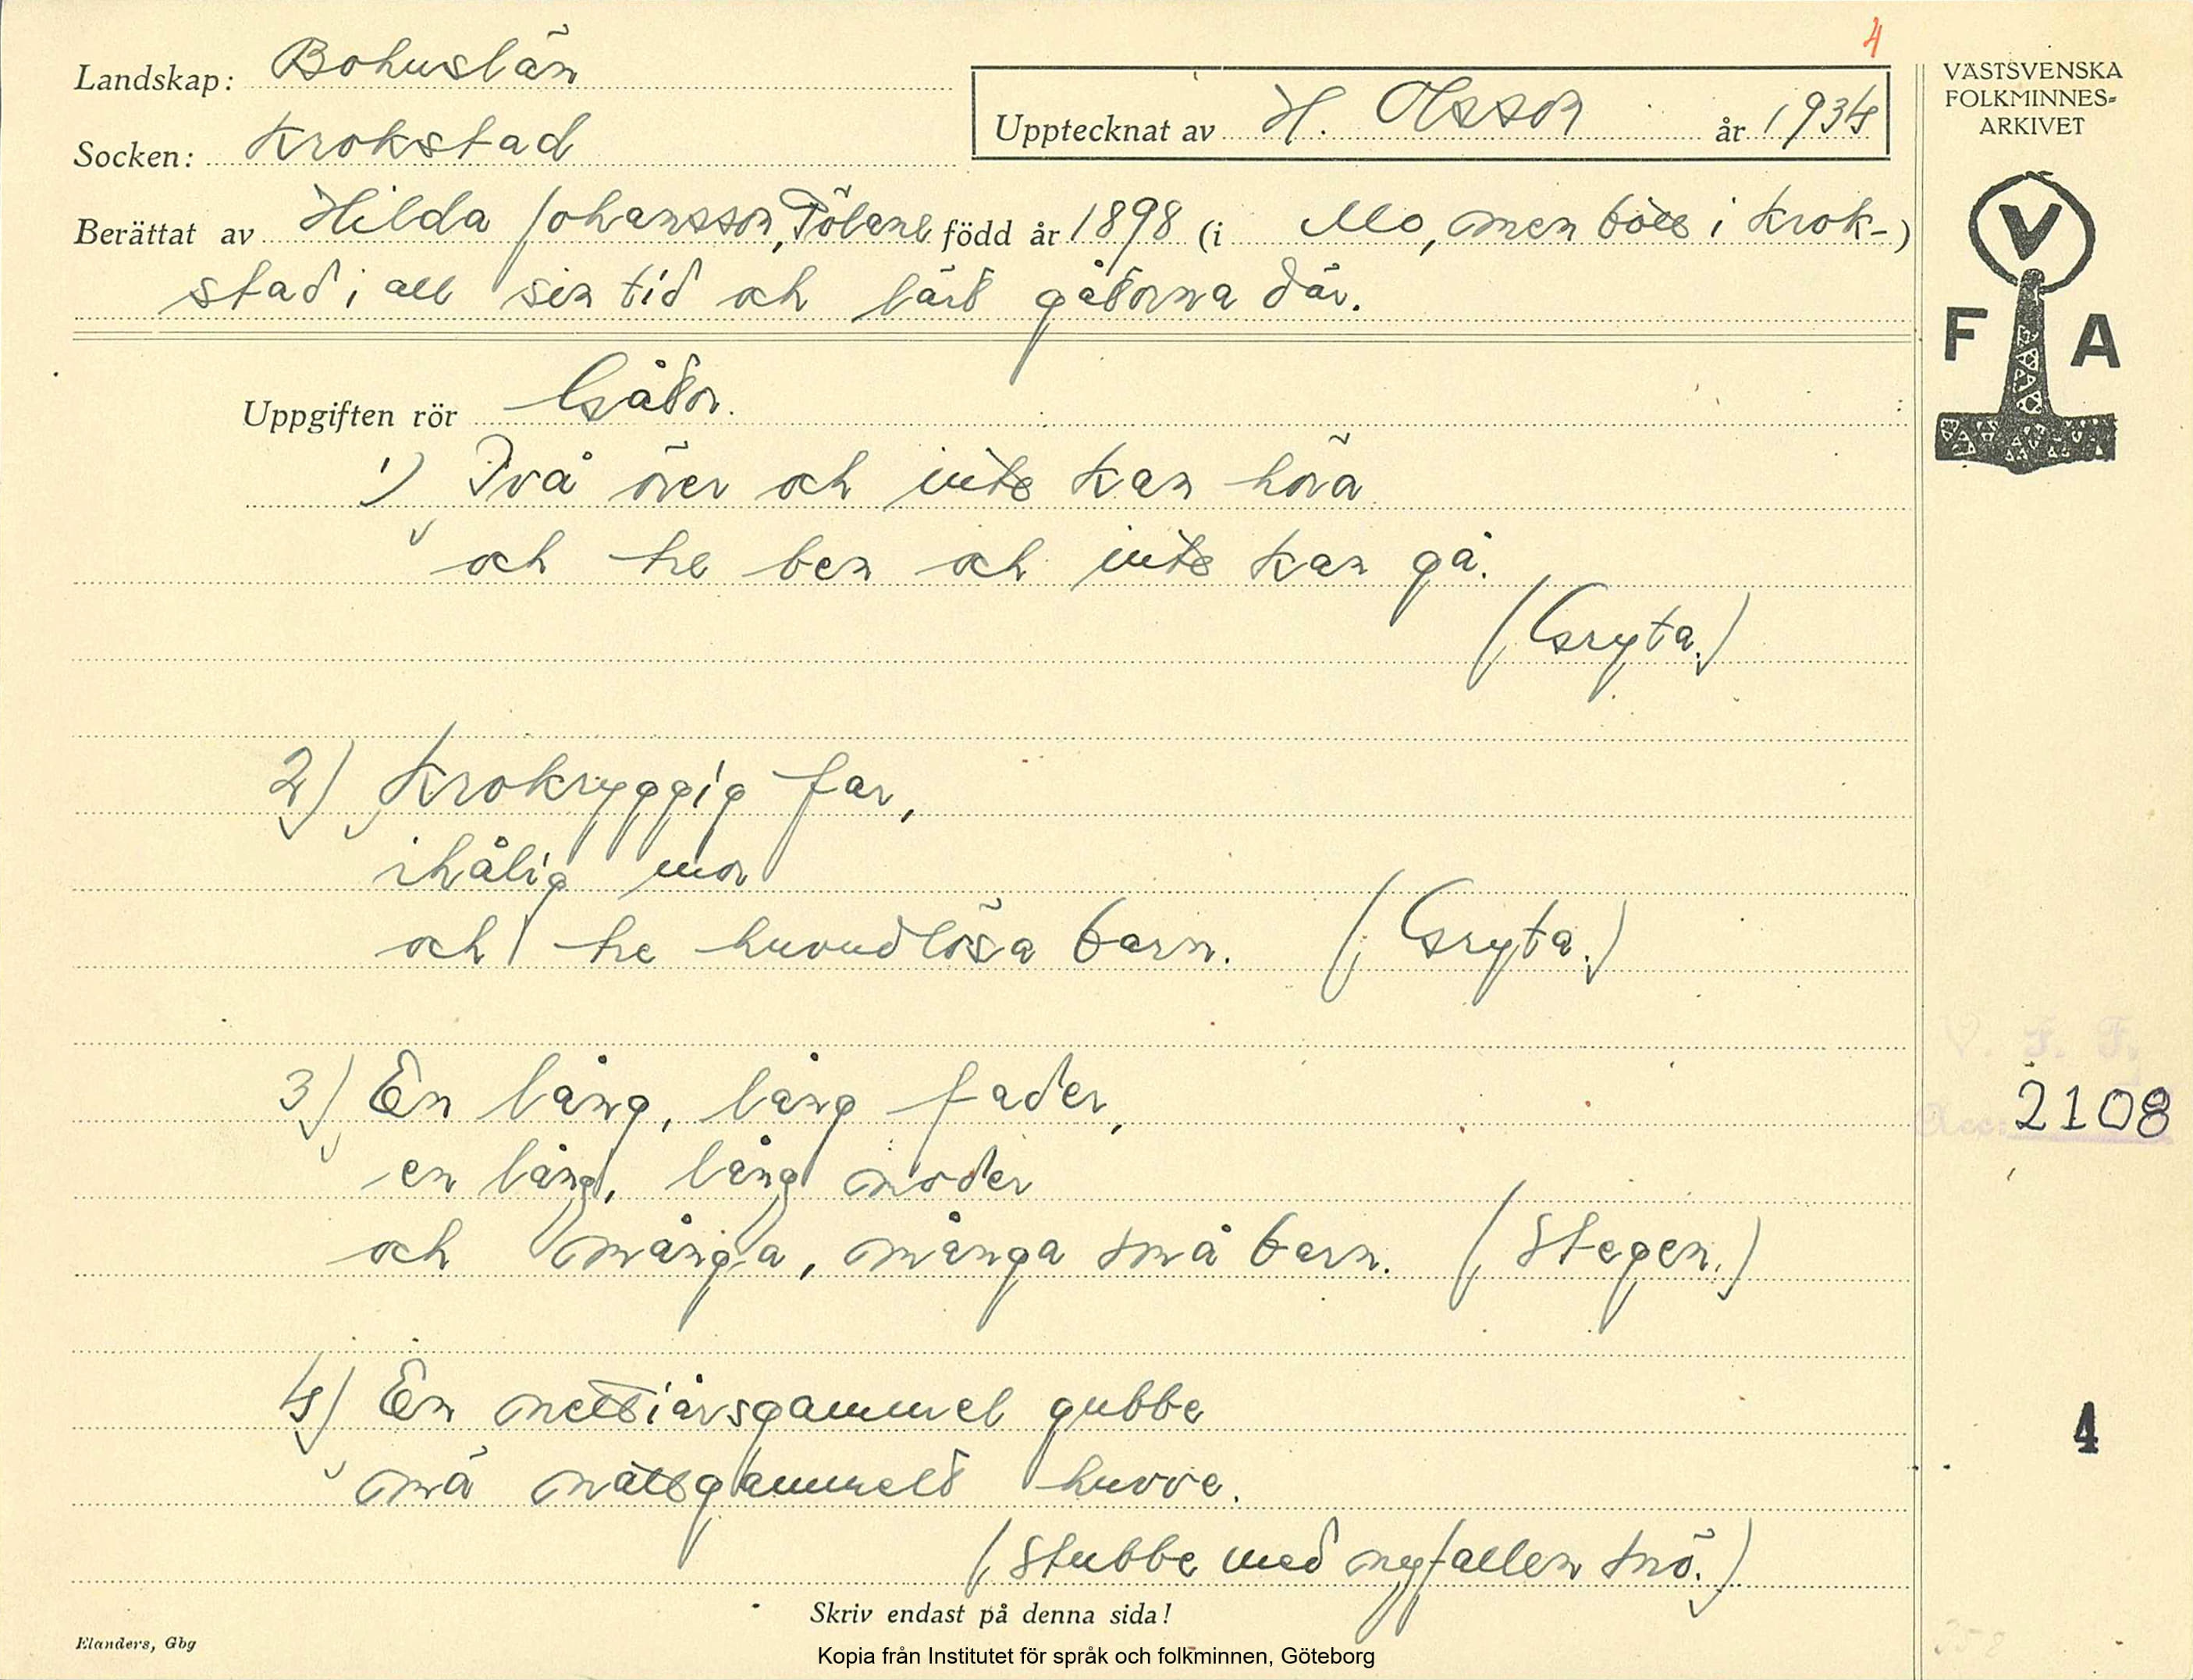 4
Landskap: Bohuslän
Upptecknat av H. Olsson år 1934
Socken: Krokstad
Berättat av Hilda Johansson, Tölane född år 1898 (i Mo, men bott i Krok-)
stad i all sin tid och lärt gåtorna där.
VÄSTSVENSKA
FOLKMINNES=
ARKIVET
V
F A
Uppgiften rör Gåtor.
1) Två örer och inte kan höra
och tre ben och inte kan gå.
(Gryta.)
2) Krokryggig far,
ihålig mor
och tre huvudlösa barn. (Gryta.)
3) En lång, lång fader,
en lång, lång moder
och många, många små barn. (Stegen.)
V. F. F.
Acc: 2108
4) En nettiårsgammel gubbe
mä nattsgammelt huvve.
(Stubbe med nyfallen snö.)
4
Skriv endast på denna sida!
Elanders, Gbg
Kopia från Institutet för språk och folkminnen, Göteborg